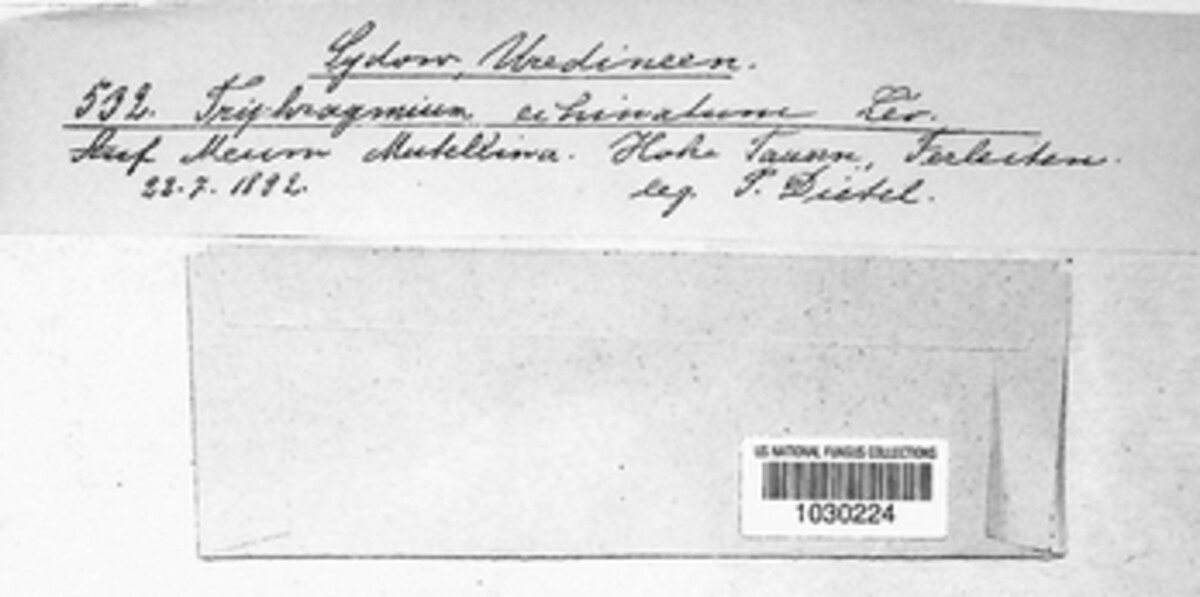 Sydow, Uredineen.
532. Triphragmium echinatum Lev.
Auf Meum Mutellina. Hohe Tauern, Ferleiten.
22.7.1892. leg. P. Dietel.
US NATIONAL FUNGUS COLLECTIONS
1030224